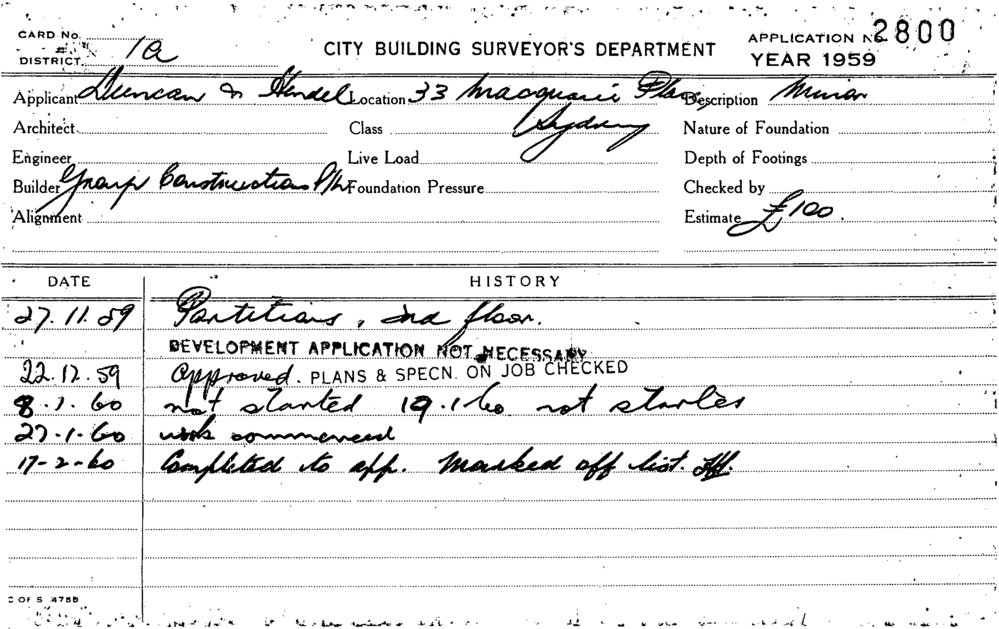 CARD No.
DISTRICT 1a
CITY BUILDING SURVEYOR'S DEPARTMENT
APPLICATION No 2800
YEAR 1959
Applicant Duncan & Hendel Location 33 Macquarie Place, Sydney Description Minor
Architect Class Nature of Foundation
Engineer Live Load Depth of Footings
Builder Group Constructions P/L Foundation Pressure Checked by
Alignment Estimate £100.
DATE HISTORY
27.11.59 Partitions, 2nd floor.
DEVELOPMENT APPLICATION NOT NECESSARY
22.12.59 Approved. PLANS & SPECN. ON JOB CHECKED
8.1.60 not started 19.1.60 not started
27-1-60 work commenced
17-2-60 Completed to app. Marked off list.
C OF S 4758